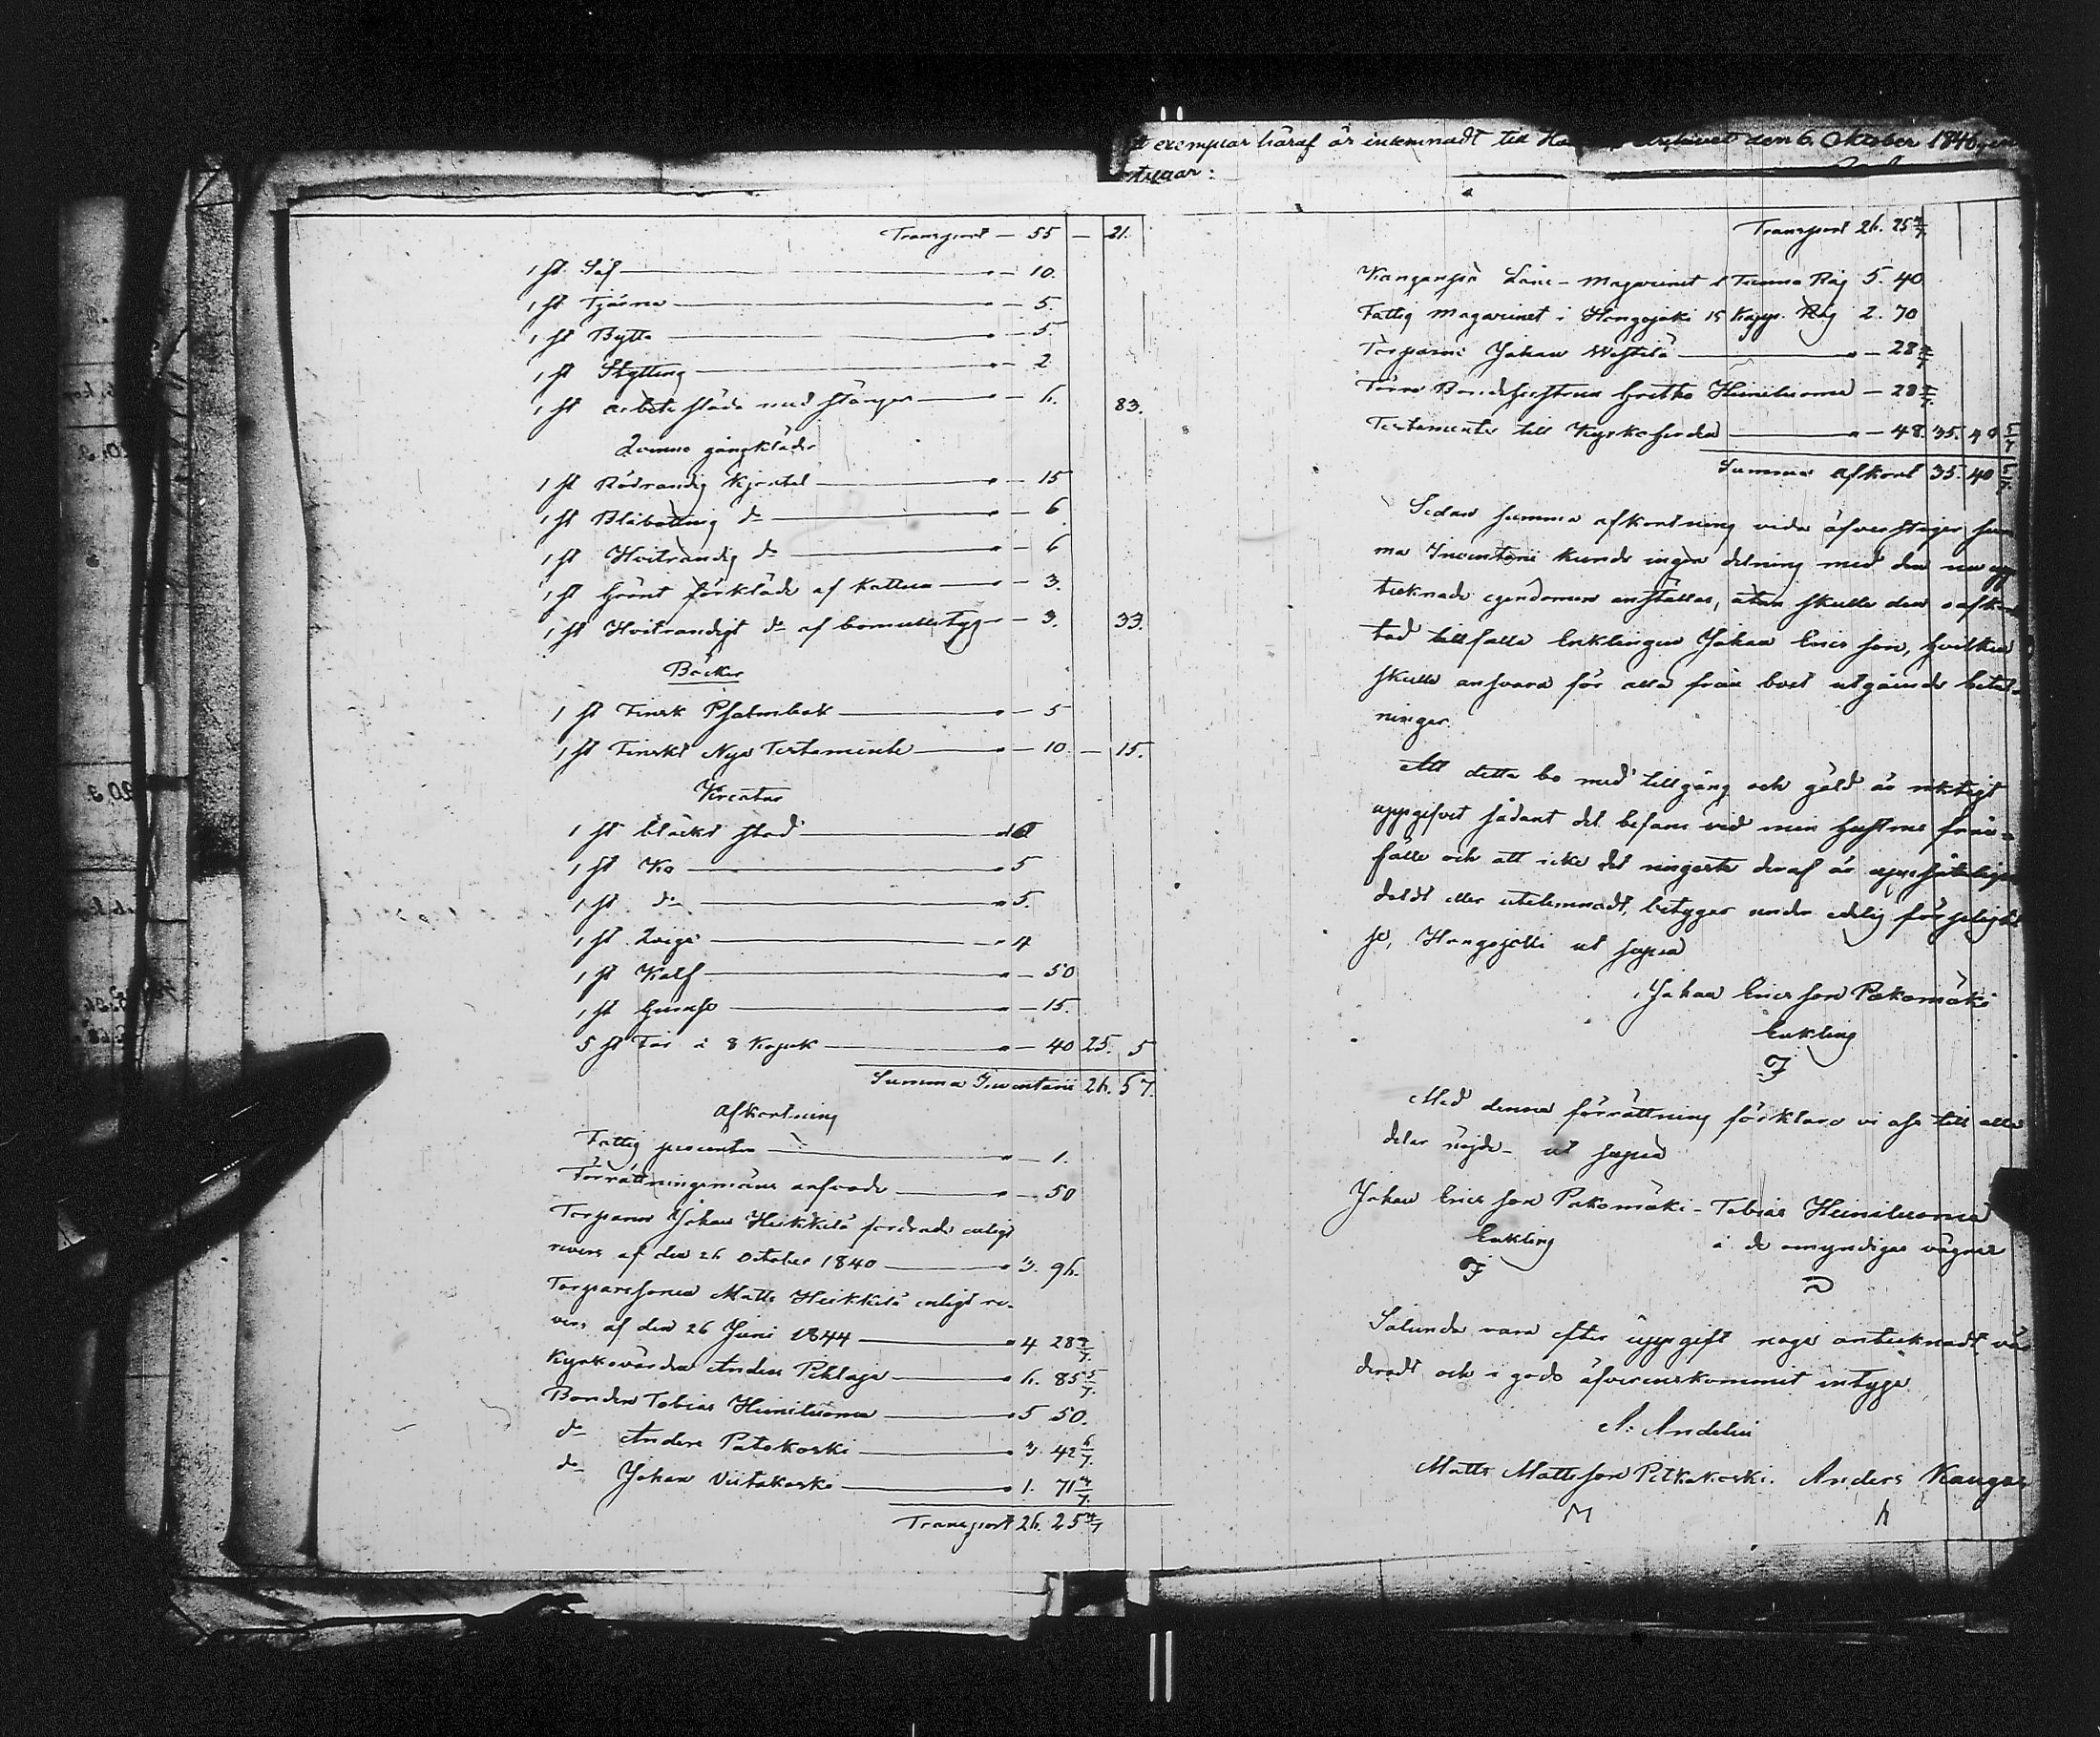 exemplar häraf är inlemnadt till den 6 Oktober 1846,
Transport — 55 — 21.
1 st Såf — 10.
1 st Tjärna — 5.
1 st Bytta — 5.
1 st Stylting — 2
1 st arbets släda med stänger — 6. 83.
Qvinno gångkläder
1 st Rödrandig Kjortel — 15
1 st Blåbottnig d:o — 6
1 st Hvitrandig d:o — 6
1 st Grönt förkläde af Kattun — 3.
1 st Hvitrandigt d:o af bomullstyg — 3. 33.
Böcker
1 st Finsk Psalmbok — 5
1 st Finskt Nya Testamente — 10. — 15.
Kreatur
1 st bläckt stod
1 st Ko — 5
1 st d:o — 5.
1 st Qviga — 4
1 st Kalf — 50
1 st Gumse — 15.
5 st Får á 8 Kopek — 40 25. 5
Summa Inventarii 26. 57.
Afkortning
Fattig procenten — 1.
Förrättningsmäns arfvode — 50
Torparen Johan Heikkilä fordrade enligt
revers af den 26 October 1840 — 3. 96.
Torparesonen Matts Heikkilä enligt re-
vers af den 26 Juni 1844 — 4 28 4/7.
Kyrkovärden Anders Pihlaja — 6. 85 5/7.
Bonden Tobias Heiniluoma — 5 50.
d:o Anders Patokoski — 3. 42 6/7.
d:o Johan Viitakoski — 1. 71 3/7.
Transport 26. 25 4/7
Transport 26. 25 4/7.
Kangansjä Låne-Magazinet 1 Tunna Råg 5. 40
Fattig Magazinet i Hongojoki 15 Kapp. Råg 2. 70
Torparen Johan — 28 4/7
Förra Bondehustrun Gretha Heiniluoma — 28 4/7.
Testamente till Kyrko — 48. 35. 40 5/7
Summa afkort 35. 40 5/7.
Sedan summa afkortning vida öfverstiger sum
ma Inventarii kunde ingen delning med den nu upp
tecknade egendomen anställas, utan skulle den oafkor
tad tillfalla Enklingen Johan Ericsson, hvilken
skulle ansvara för alla från boet utgående betal-
ningar.
Att detta bo med tillgång och gäld är riktigt
uppgifvet sådant det befans vid min hustrus från-
fälle och att icke det ringaste deraf är uppsåteligen
doldt eller utelemnadt, betygar under edelig förpligtel
se, Hongojoki ut supra
Johan Ericsson Pokomäki
Enkling
F
Med denna förrättning förklara vi oss till alla
delar nöjde ut supra
Johan Ericsson Pokomäki - Tobias Heiniluoma
Enkling i de omyndigas vägnar
F
Sålunda vara efter uppgift noga antecknadt vär
deradt och i godo öfverenskommit intyga
A: Andelin
Matts Mattsson Pitkäkoski. Anders Kangas
M